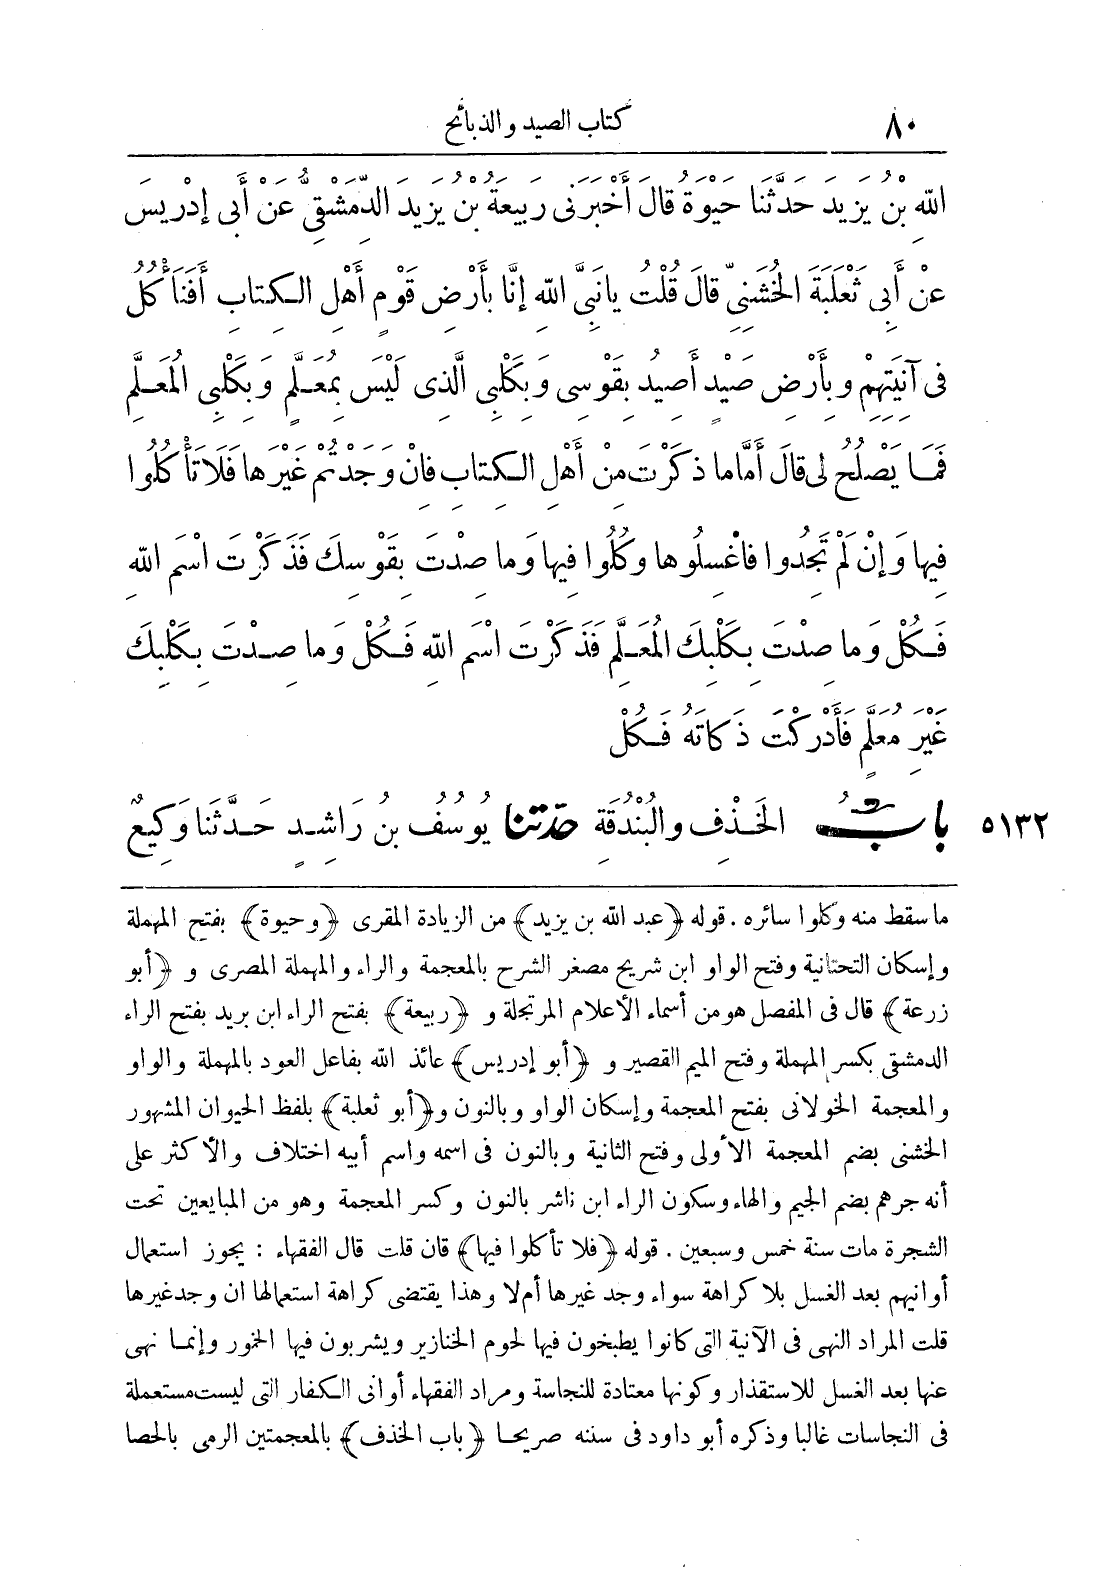 ٨٠ كتاب الصيد والذبائح
اللهِ بْنُ يَزِيدَ حَدَّثَنَا حَيْوَةُ قَالَ أَخْبَرَنِى رَبِيعَةُ بْنُ يَزِيدَ الدِّمَشْقِىُّ عَنْ أَبِى إِدْرِيسَ
عَنْ أَبِى ثَعْلَبَةَ الْخُشَنِىِّ قَالَ قُلْتُ يَانَبِىَّ اللهِ إِنَّا بِأَرْضِ قَوْمٍ أَهْلِ الْكِتَابِ أَفَنَأْكُلُ
فِى آنِيَتِهِمْ وَبِأَرْضِ صَيْدٍ أَصِيدُ بِقَوْسِى وَبِكَلْبِى الَّذِى لَيْسَ بِمُعَلَّمٍ وَبِكَلْبِى الْمُعَلَّمِ
فَمَا يَصْلُحُ لِى قَالَ أَمَّا مَا ذَكَرْتَ مِنْ أَهْلِ الْكِتَابِ فَانْ وَجَدْتُمْ غَيْرَهَا فَلَا تَأْكُلُوا
فِيهَا وَإِنْ لَمْ تَجِدُوا فَاغْسِلُوهَا وَكُلُوا فِيهَا وَمَا صِدْتَ بِقَوْسِكَ فَذَكَرْتَ اسْمَ اللهِ
فَكُلْ وَمَا صِدْتَ بِكَلْبِكَ الْمُعَلَّمِ فَذَكَرْتَ اسْمَ اللهِ فَكُلْ وَمَا صِدْتَ بِكَلْبِكَ
غَيْرِ مُعَلَّمٍ فَأَدْرَكْتَ ذَكَاتَهُ فَكُلْ
٥١٣٢ بَابُ الْخَذْفِ وَالْبُنْدُقَةِ حَدَّثَنَا يُوسُفُ بْنُ رَاشِدٍ حَدَّثَنَا وَكِيعٌ
ما سقط منه وكلوا سائره . قوله ﴿عبد الله بن يزيد﴾ من الزيادة المقرى ﴿وحيوة﴾ بفتح المهملة
وإسكان التحتانية وفتح الواو ابن شريح مصغر الشرح بالمعجمة والراء والمهملة المصرى و ﴿أبو
زرعة﴾ قال فى المفصل هو من أسماء الأعلام المرتجلة و ﴿ربيعة﴾ بفتح الراء ابن بريد بفتح الراء
الدمشقى بكسر المهملة وفتح الميم القصير و ﴿أبو إدريس﴾ عائذ الله بفاعل العود بالمهملة والواو
والمعجمة الخولانى بفتح المعجمة وإسكان الواو وبالنون و﴿أبو ثعلبة﴾ بلفظ الحيوان المشهور
الخشنى بضم المعجمة الأولى وفتح الثانية وبالنون فى اسمه واسم أبيه اختلاف والأكثر على
أنه جرهم بضم الجيم والهاء وسكون الراء ابن ناشر بالنون وكسر المعجمة وهو من المبايعين تحت
الشجرة مات سنة خمس وسبعين . قوله ﴿فلا تأكلوا فيها﴾ قان قلت قال الفقهاء : يجوز استعمال
أوانيهم بعد الغسل بلا كراهة سواء وجد غيرها أم لا وهذا يقتضى كراهة استعمالها ان وجد غيرها
قلت المراد النهى فى الآنية التى كانوا يطبخون فيها لحوم الخنازير ويشربون فيها الخمور وإنما نهى
عنها بعد الغسل للاستقذار وكونها معتادة للنجاسة ومراد الفقهاء أوانى الكفار التى ليست مستعملة
فى النجاسات غالبا وذكره أبو داود فى سننه صريحا ﴿باب الخذف﴾ بالمعجمتين الرمى بالحصا